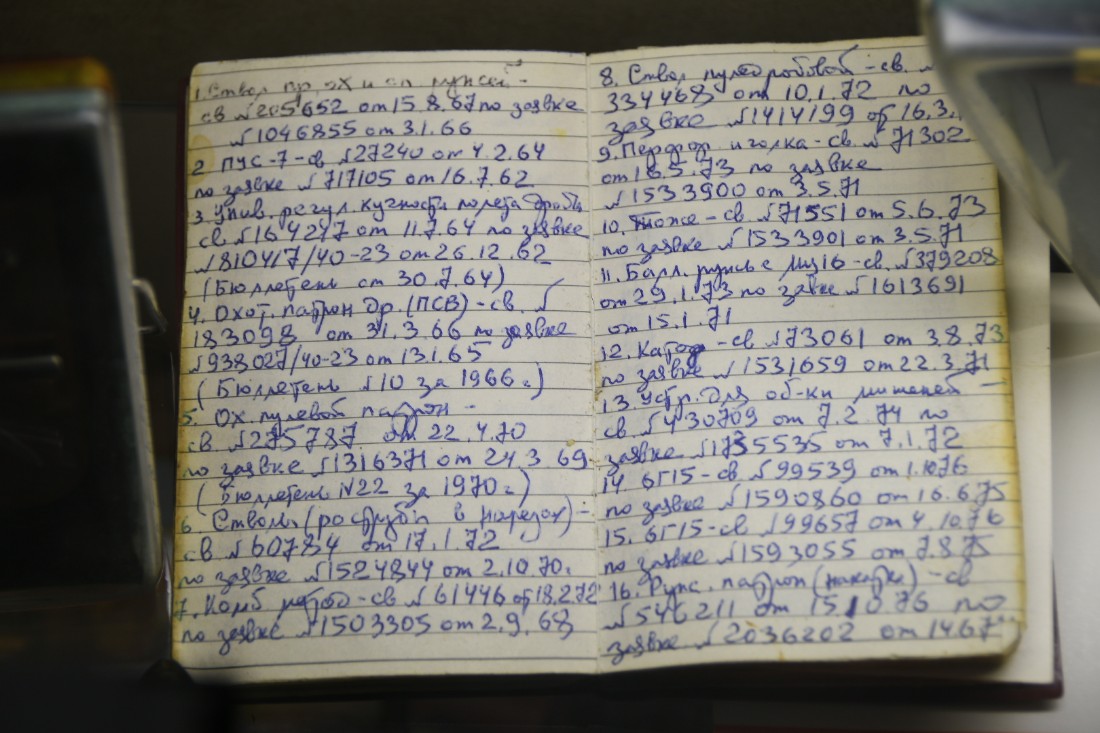 1. Ствол др. ох и сп ружей -
св №205652 от 15.8.67 по заявке
№1046855 от 3.1.66
2 ПУС-7-св №27240 от 4.2.64
по заявке №717105 от 16.7.62
3. Унив. регул. кучности полета дробы
св №164247 от 11.7.64 по заявке
№810417/40-23 от 26.12.62
(Бюллетень от 30.7.64)
4. Охот. патрон др. (ПСВ) - св. №
183098 от 31.3.66 по заявке
№938027/40-23 от 13.1.65
(Бюллетень №10 за 1966 г.)
5. Ох. пулевой патрон -
св. №275787. от 22.4.70
по заявке №1316371 от 24.3.69
(Бюллетень №22 за 1970 г.)
6. Стволы (раструбы в нарезах) -
св №60784 от 17.1.72
по заявке №1524844 от 2.10.70.
7. Комб - св №61446 от 18.2.72
по заявке №1503305 от 2.9.68
8. Ствол пуледробовой - св. №
334468 от 10.1.72 по
заявке №1414199 от 16.3.
9. Перфор. иголка - св. №71302
от 16.5.73 по заявке
№1533900 от 3.5.71
10. Тоже - св №71551 от 5.6.73
по заявке №1533901 от 3.5.71
11. Балл. ружье с Мц16 - св. №379208
от 29.1.73 по завке №1613691
от 15.1.71
12. - св №73061 от 3.8.73
по заявке №1531659 от 22.3.71
13. Устр. для об-ки мишеней -
св №430709 от 7.2.74 по
заявке №1735535 от 7.1.72
14 6Г15 - св №99539 от 1.10.76
по заявке №1590860 от 16.6.75
15. 6Г15 - св №99657 от 4.10.76
по заявке №1593055 от 7.8.75
16. Руж. патрон (накатка) - св
№546211 от 15.10.76 по
заявке №2036202 от 14.6.7